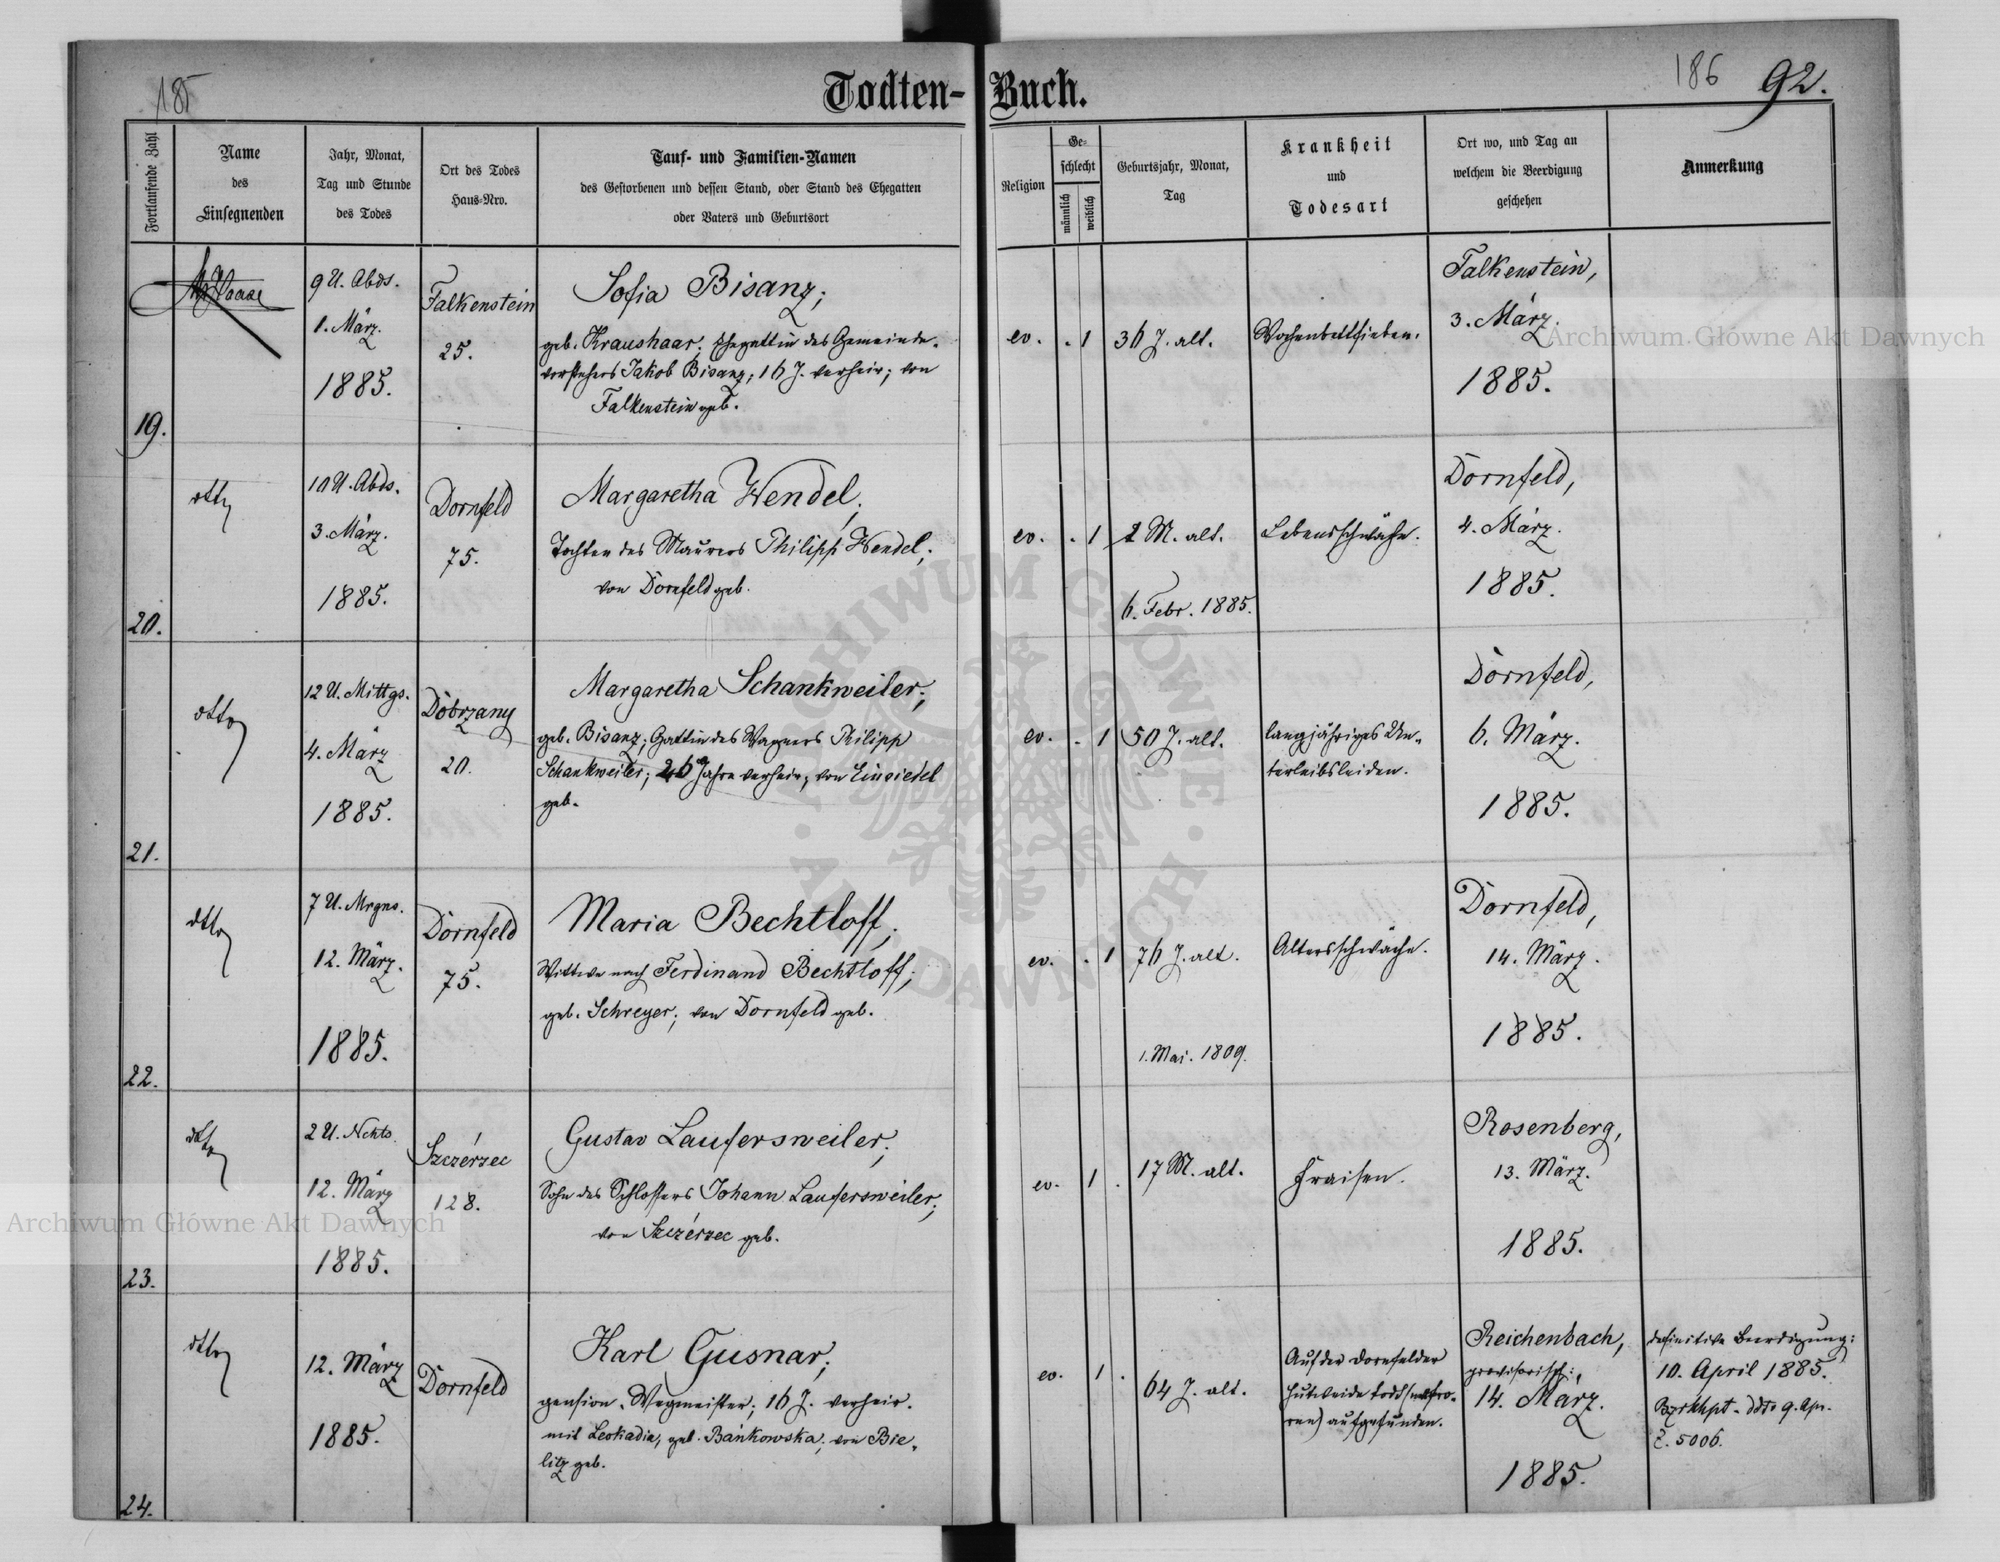 185
186
92.
Todten-Buch.
Fortlaufende Zahl
Name
des
Einsegnenden
Jahr, Monat,
Tag und Stunde
des Todes
Ort des Todes
Haus-Nro.
Tauf- und Familien-Namen
des Gestorbenen und dessen Stand, oder Stand des Ehegatten
oder Vaters und Geburtsort
Religion
Ge-
schlecht
männlich
weiblich
Geburtsjahr, Monat,
Tag
Krankheit
und
Todesart
Ort wo, und Tag an
welchem die Beerdigung
geschehen
Anmerkung
19.
Haase
9 U. Abds.
1. März.
1885.
Falkenstein
25.
Sofia Bisanz;
geb. Kraushaar. Ehegattin des Gemeinde-
vorstehers Jakob Bisanz; 16 J. verheir; von
Falkenstein geb.
ev.
. 1
36 J. alt.
Wochenbettfieber.
Falkenstein,
3. März.
1885.
20.
dtto
10 U. Abds.
3. März.
1885.
Dornfeld
75.
Margaretha Wendel,
Tochter des Maurers Philipp Wendel;
von Dornfeld geb.
ev.
. 1
1 M. alt.
6. Febr. 1885.
Lebensschwäche.
Dornfeld,
4. März.
1885.
21.
dtto
12 U. Mittgs.
4. März
1885.
Dobrzany
20.
Margaretha Schankweiler;
geb. Bisanz; Gattin des Wagners Philipp
Schankweiler; 26 Jahre verheir; von Einsiedel
geb.
ev.
. 1
50 J. alt.
langjähriges Un-
terleibsleiden.
Dornfeld,
6. März.
1885.
22.
dtto
7 U. Mrgns.
12. März.
1885.
Dornfeld
75.
Maria Bechtloff;
Wittwe nach Ferdinand Bechtloff;
geb. Schreyer; von Dornfeld geb.
ev.
. 1
76 J. alt.
1. Mai. 1809.
Altersschwäche.
Dornfeld,
14. März.
1885.
23.
dtto
2 U. Nchts.
12. März
1885.
Szczérzec
128.
Gustav Laufersweiler;
Sohn des Schlossers Johann Laufersweiler;
von Szczérzec geb.
ev.
1 .
17 M. alt.
Fraisen.
Rosenberg,
13. März.
1885.
24.
dtto
12. März
1885.
Dornfeld
Karl Gusnar;
pension. Wegmeister; 16 J. verheir.
mit Leokadia, geb. Bańkowska; von Bie-
litz geb.
ev.
1 .
64 J. alt.
Auf der Dornfelder
Hutweide todt (erfro-
ren) aufgefunden.
Reichenbach,
provisorisch;
14. März.
1885.
definitive Beerdigung:
10. April 1885.
Bzrkhpt. ddto 9. Apr.
Z. 5006.
Archiwum Główne Akt Dawnych
Archiwum Główne Akt Dawnych
ARCHIWUM GŁÓWNE
AKT DAWNYCH